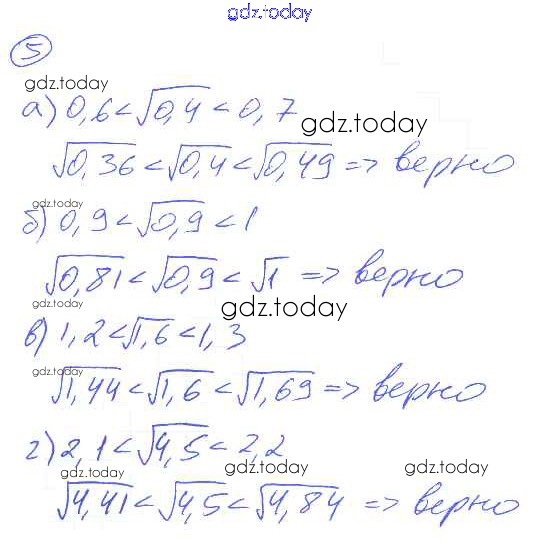 gdz.today
5
gdz.today
а) 0,6 < √0,4 < 0,7
gdz.today
√0,36 < √0,4 < √0,49 => верно
gdz.today
б) 0,9 < √0,9 < 1
√0,81 < √0,9 < √1 => верно
gdz.today gdz.today
в) 1,2 < √1,6 < 1,3
gdz.today
√1,44 < √1,6 < √1,69 => верно
г) 2,1 < √4,5 < 2,2
gdz.today gdz.today gdz.today
√4,41 < √4,5 < √4,84 => верно